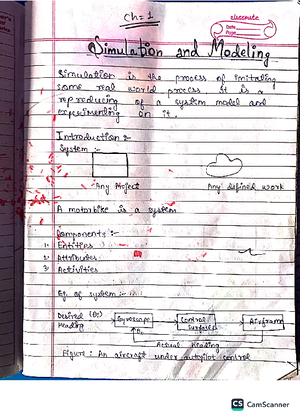 Ch=1
classmate
Date
Page
Simulation and Modeling
Simulation is the process of imitating
some real world process It is a
reproducing of a system model and
experimenting on it.
Introduction :-
System :-
Any Project
Any defined work
A motorbike is a system
Components :-
1. Entities
2. Attributes
3. Activities
Eg. of system :-
Desired (θi) Heading
Gyroscope
Control Surfaces
Airframe
Actual Heading
Figure : An aircraft under autopilot control
CS CamScanner